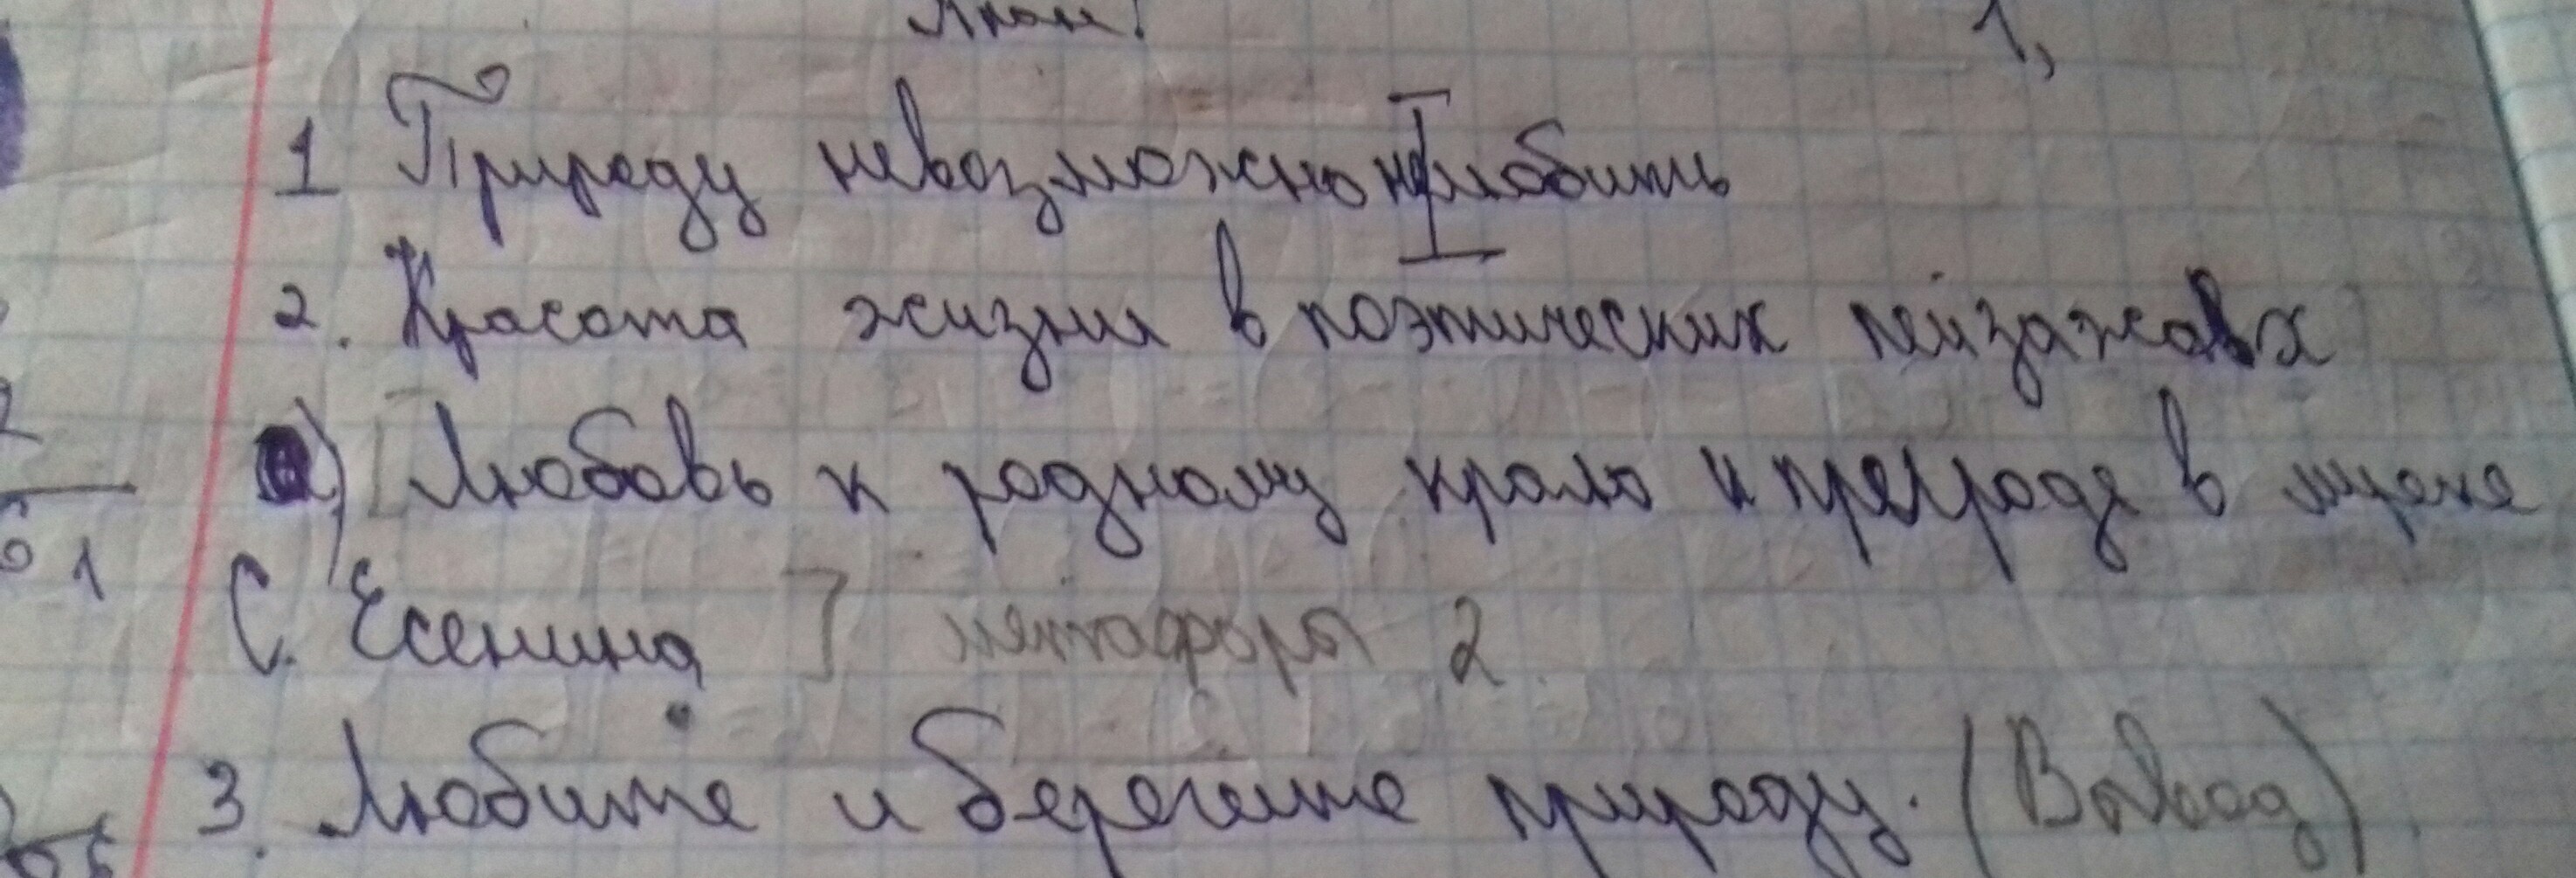 План!
1,
1 Природу невозможно не любить
2. Красота жизни в поэтических пейзажах
а) [Любовь к родному краю и природе в лирике
С. Есенина] метафоры 2
3. Любите и берегите природу. (Вывод)
1